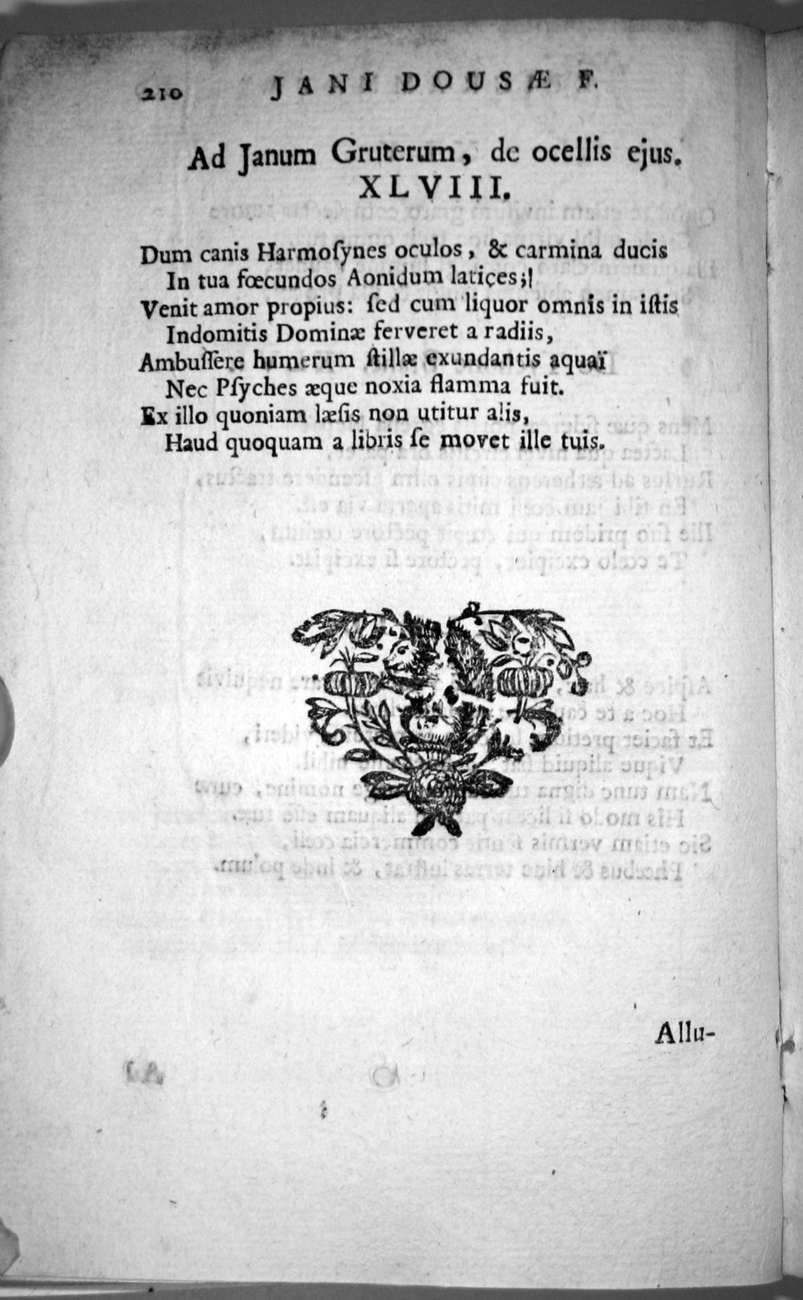 210 JANI DOUSÆ F.
Ad Janum Gruterum, de ocellis ejus.
XLVIII.
Dum canis Harmoſynes oculos, & carmina ducis
In tua fœcundos Aonidum latices;
Venit amor propius: ſed cum liquor omnis in iſtis
Indomitis Dominæ ferveret a radiis,
Ambuſſere humerum ſtillæ exundantis aquaï
Nec Pſyches æque noxia flamma fuit.
Ex illo quoniam læſis non utitur alis,
Haud quoquam a libris ſe movet ille tuis.
Allu-